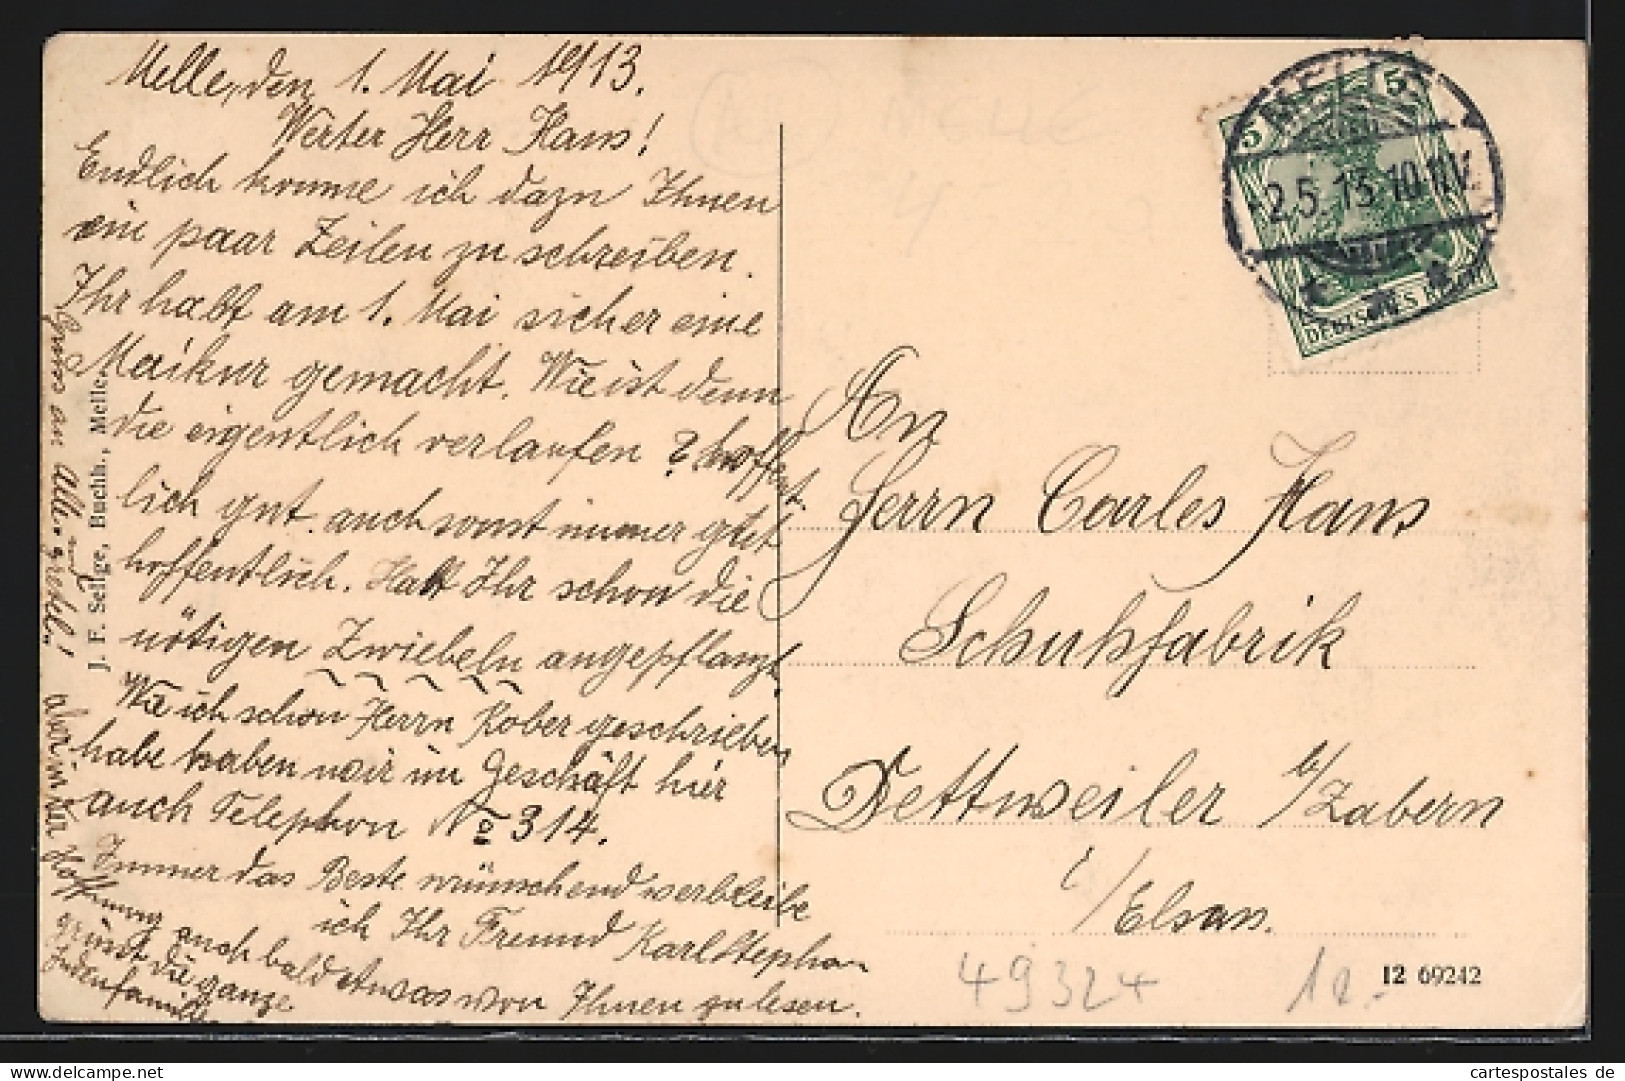 Melle, den 1. Mai 1913.
Werter Herr Hans!
Endlich komme ich dazu Ihnen
ein paar Zeilen zu schreiben.
Ihr habt am 1. Mai sicher eine
Maikur gemacht. Wie ist denn
die eigentlich verlaufen? hoffent
lich gut. auch sonst immer gut
hoffentlich. Habt Ihr schon die
nötigen Zwiebeln angepflanzt.
Wie ich schon Herrn Kober geschrieben
habe haben wir im Geschäft hier
auch Telephon No 314.
Immer das Beste wünschend verbleibe
ich Ihr Freund Karl Stephan
Gruss an Alle
aber in der Hoffnung auch bald etwas von Ihnen zu lesen.
grüsst die ganze
Judenfamilie
J. F. Seilge, Buchh., Melle.
MELLE
2.5.13.10-11V.
5 5
DEUTSCHES REICH
An
Herrn Carles Hans
Schuhfabrik
Dettweiler b/Zabern
i/Elsass.
49324
12 69242
cartespostales de